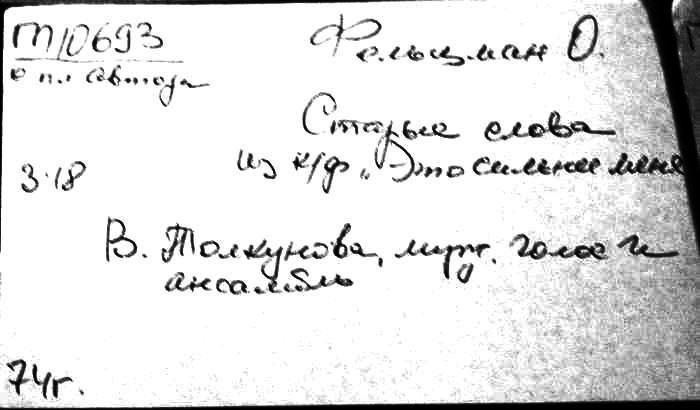 М10693
Фельцман О.
Старые слова
из к/ф „Это сильнее меня
3-18
В. Толкунова, муж. голос и
ансамбль
74г.